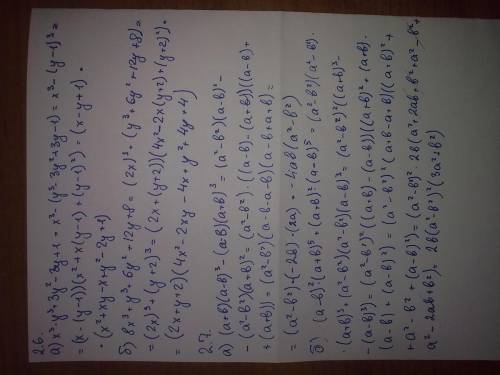 2.6.
а) x³-y³+3y²-3y+1 = x³-(y³-3y²+3y-1) = x³-(y-1)³ =
= (x-(y-1))(x²+x(y-1)+(y-1)²) = (x-y+1)·
·(x²+xy-x+y²-2y+1)
б) 8x³+y³+6y²+12y+8 = (2x)³+(y³+6y²+12y+8) =
= (2x)³+(y+2)³ = (2x+(y+2))(4x²-2x(y+2)+(y+2)²) =
= (2x+y+2)(4x²-2xy-4x+y²+4y+4)
2.7.
а) (a+b)(a-b)³-(a-b)(a+b)³ = (a²-b²)(a-b)²-
-(a²-b²)(a+b)² = (a²-b²)·((a-b)-(a+b))((a-b)+
+(a+b)) = (a²-b²)(a-b-a-b)(a-b+a+b) =
= (a²-b²)·(-2b)·(2a) = -4ab(a²-b²)
б) (a-b)²(a+b)⁵-(a+b)²(a-b)⁵ = (a²-b²)(a²-b²)·
·(a+b)³-(a²-b²)(a²-b²)(a-b)³ = (a²-b²)²((a+b)³-
-(a-b)³) = (a²-b²)²((a+b)-(a-b))((a+b)²+(a+b)·
(a-b)+(a-b)²) = (a²-b²)²(a+b-a+b)((a+b)²+
+a²-b²+(a-b)²) = (a²-b²)² 2b(a²+2ab+b²+a²-b²+
a²-2ab+b²) = 2b(a²-b²)²(3a²+b²)